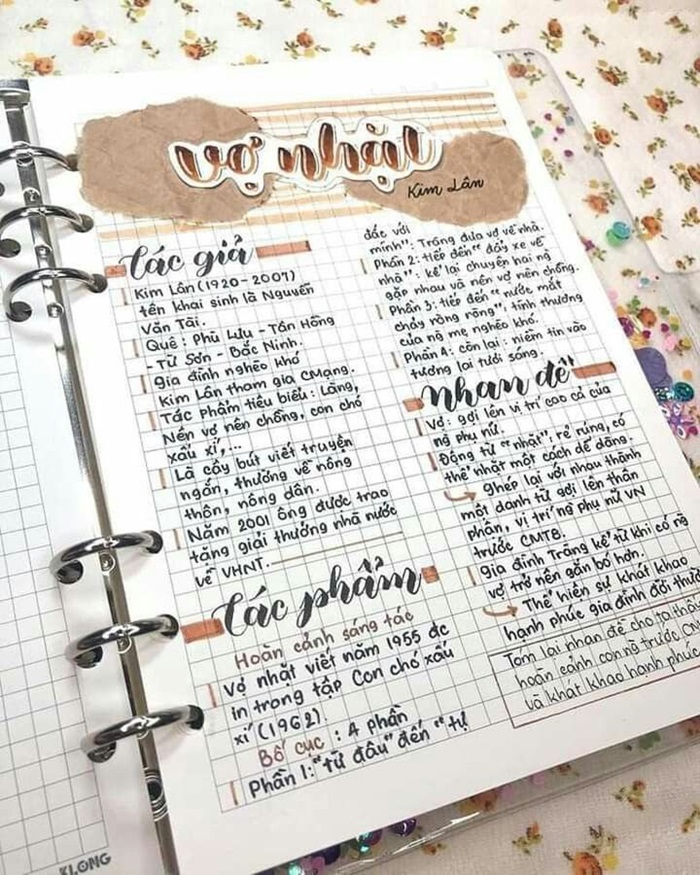 vợ nhặt
Kim Lân
Tác giả
Kim Lân (1920-2007)
tên khai sinh là Nguyễn
Văn Tài.
Quê: Phù Lưu - Tân Hồng
- Từ Sơn - Bắc Ninh.
gia đình nghèo khó
Kim Lân tham gia CMạng.
Tác Phẩm tiêu biểu: Làng,
Nên vợ nên chồng, con chó
xấu xí,...
Là cây bút viết truyện
ngắn, thường về nông
thôn, nông dân.
Năm 2001 ông được trao
tặng giải thưởng nhà nước
về VHNT.
Tác phẩm
Hoàn cảnh sáng tác
Vợ nhặt viết năm 1955 đc
in trong tập Con chó xấu
xí (1962)
Bố cục: 4 phần
Phần 1: "từ đầu" đến "tự
đắc với
mình": Tràng đưa vợ về nhà.
Phần 2: tiếp đến "đẩy xe về
nhà": kể lại chuyện hai ng
gặp nhau và nên vợ nên chồng.
Phần 3: tiếp đến "nước mắt
chảy ròng ròng": tình thương
của ng mẹ nghèo khó.
Phần 4: còn lại: niềm tin vào
tương lai tươi sáng.
Nhan đề
Vợ: gợi lên vị trí cao cả của
ng phụ nữ.
Động từ "nhặt": rẻ rúng, có
thể nhặt một cách dễ dàng.
Ghép lại với nhau thành
một danh từ gợi lên thân
phận, vị trí ng phụ nữ VN
trước CMT8.
gia đình Tràng kể từ khi có ng
vợ trở nên gắn bó hơn.
Thể hiện sự khát khao
hạnh phúc gia đình đời thườ
Tóm lại nhan đề cho ta thấ
hoàn cảnh con ng trước CM
và khát khao hạnh phúc
KLONG